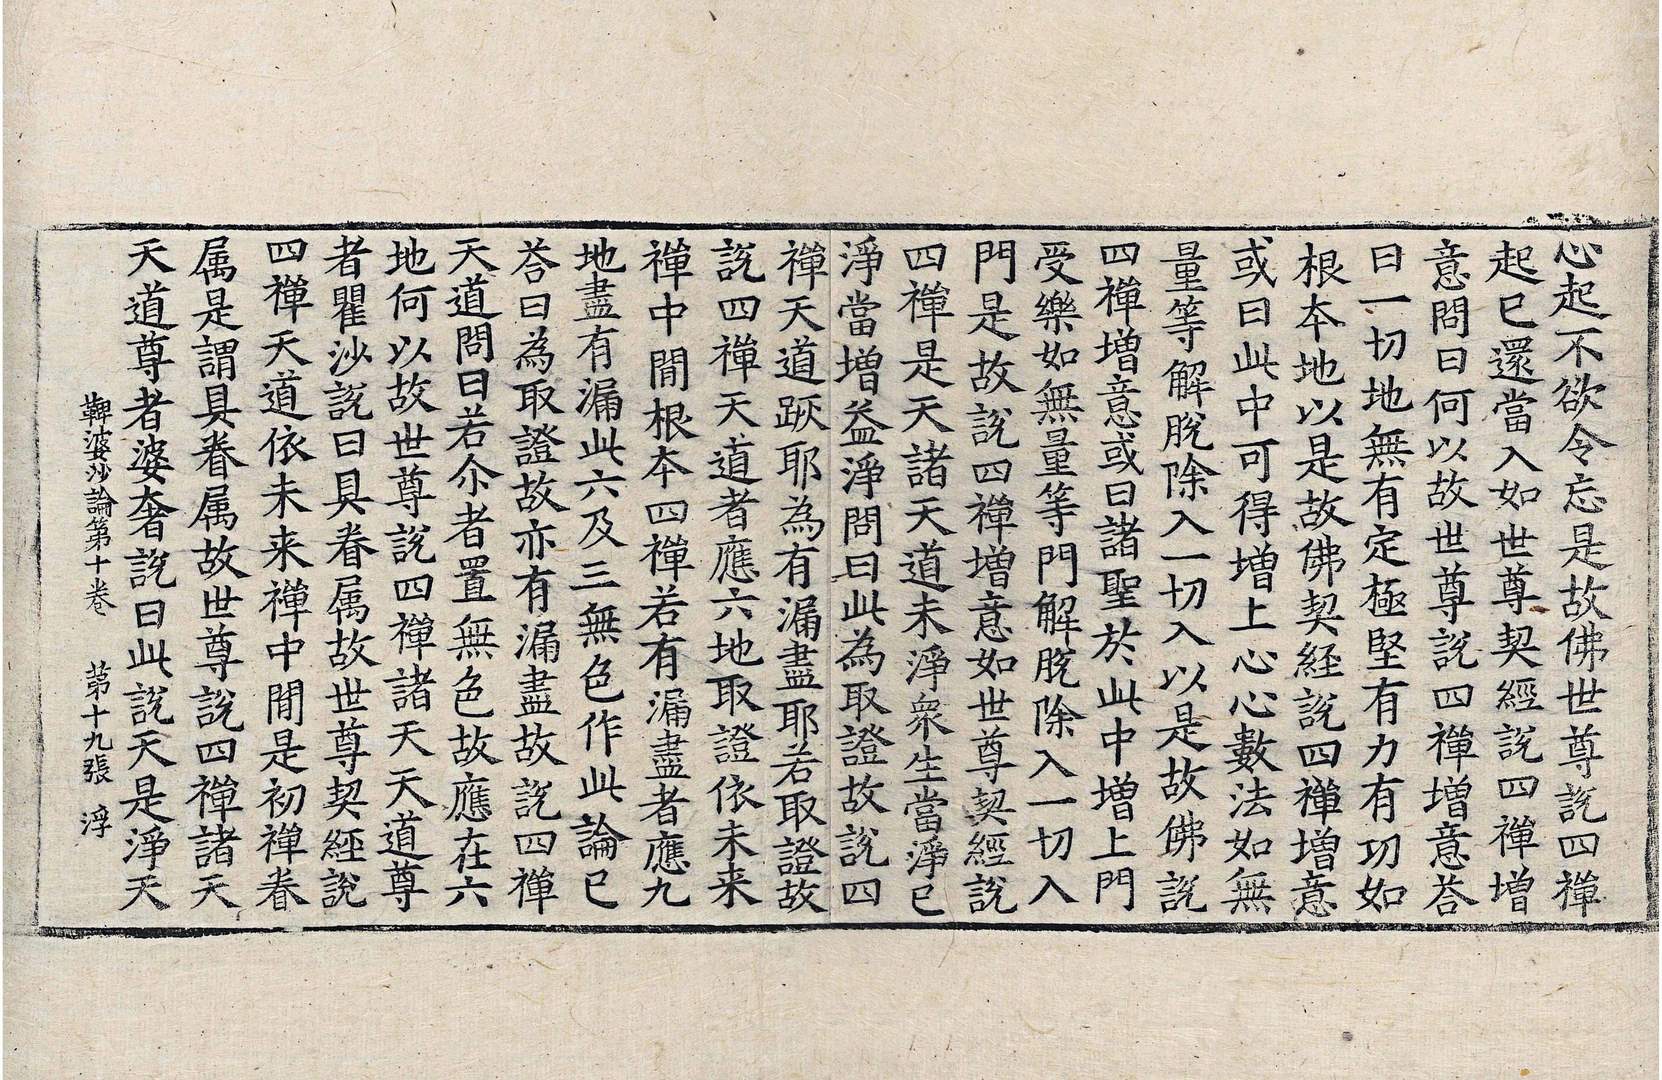 心起不欲令忘是故佛世尊説四禪
起已還當入如世尊契經説四禪增
意問曰何以故世尊説四禪增意荅
曰一切地無有定極堅有力有功如
根本地以是故佛契経説四禪增意
或曰此中可得增上心心數法如無
量等解脫除入一切入以是故佛説
四禪增意或曰諸聖於此中增上門
受樂如無量等門解脫除入一切入
門是故説四禪增意如世尊契經説
四禪是天諸天道未淨衆生當淨已
淨當增益淨問曰此為取證故説四
禪天道蹶耶為有漏盡耶若取證故
説四禪天道者應六地取證依未来
禪中間根本四禪若有漏盡者應九
地盡有漏此六及三無色作此論已
荅曰為取證故亦有漏盡故説四禪
天道問曰若尒者置無色故應在六
地何以故世尊説四禪諸天天道尊
者瞿沙説曰具眷属故世尊契經説
四禪天道依未来禪中間是初禪眷
属是謂具眷属故世尊説四禪諸天
天道尊者婆奢説曰此説天是淨天
鞞婆沙論第十卷 第十九張 浮